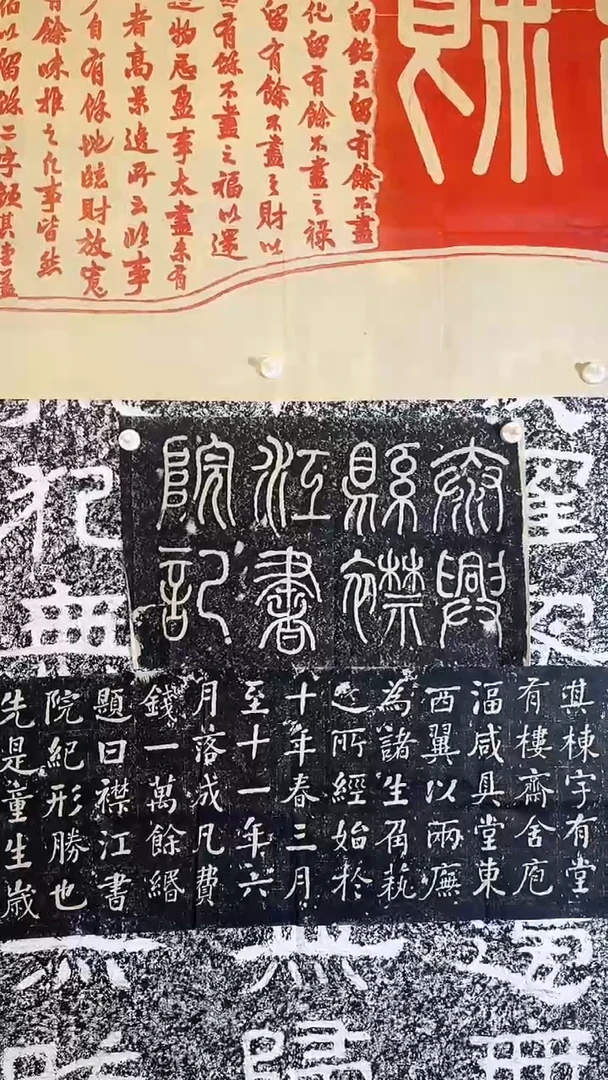 餘
留銘云留有餘不盡
化留有餘不盡之祿
留有餘不盡之財以
有餘不盡之福以還
造物忌盈事太盡未有
者高景逸所云臨事
自有餘地臨財放寬
有餘味推之凡事皆然
以留餘二字顏其堂蓋
泰興
縣襟
江書
院記
其棟宇有堂
有樓齋舍庖
湢咸具堂東
西翼以兩廡
為諸生角藝
之所經始於
十年春三月
至十一年六
月落成凡費
錢一萬餘緡
題曰襟江書
院紀形勝也
先是童生歲
犯無
歸